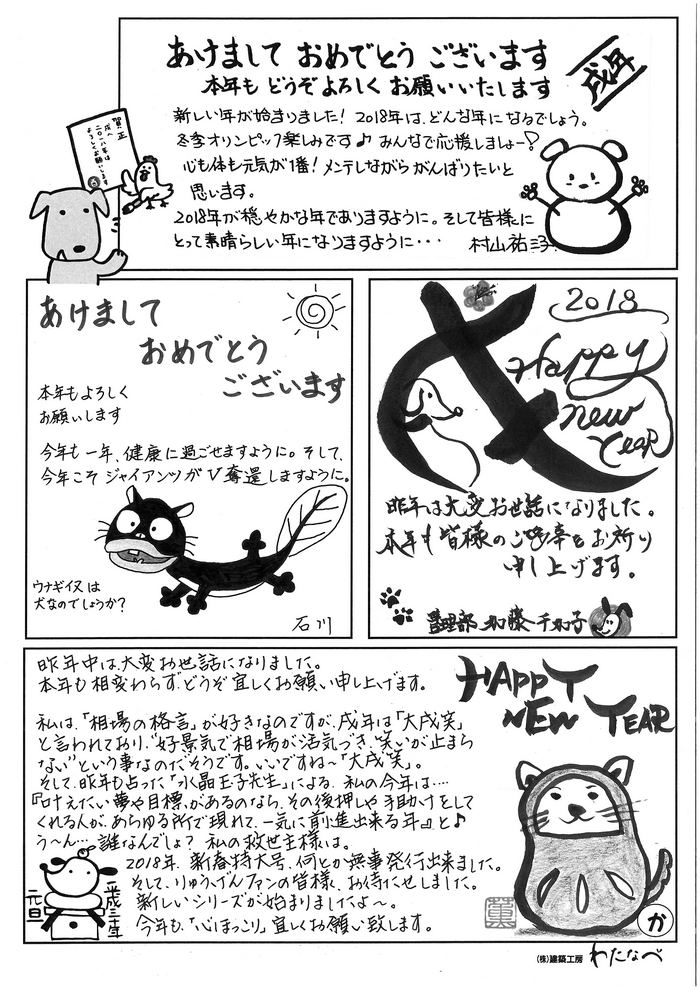 あけまして おめでとう ございます
本年も どうぞよろしく お願いいたします
戌年
新しい年が始まりました！ 2018年は、どんな年になるでしょう。
冬季オリンピック楽しみです♪ みんなで応援しましょー！
心も体も元気が1番！ メンテしながら がんばりたいと
思います。
2018年が穏やかな年でありますように。そして皆様に
とって素晴らしい年になりますように・・・ 村山祐三子
賀正
二〇一八年は
よろしくお願いします
あけまして
おめでとう
ございます
本年もよろしく
お願いします
今年も一年、健康に過ごせますように。そして、
今年こそ ジャイアンツが V奪還しますように。
ウナギイヌは
犬なのでしょうか？
石川
2018
Happy
new
Year
昨年は大変お世話になりました。
本年も皆様のご多幸をお祈り
申し上げます。
管理部 加藤千加子
昨年中は、大変お世話になりました。
本年も相変わらず、どうぞ宜しくお願い申し上げます。
HAPPY
NEW YEAR
私は、「相場の格言」が好きなのですが、戌年は「大戌笑」
と言われており、“好景気で相場が活気づき、笑いが止まら
ない”という事なのだそうです。いいですね〜「大戌笑」。
そして、昨年も占った「水晶玉子先生」による、私の今年は…
『叶えたい夢や目標があるのなら、その後押しや手助けをして
くれる人が、あらゆる所で現れて、一気に前進出来る年』と♪
う〜ん…誰なんでしょ？ 私の救世主様は。
2018年、新春特大号、何とか無事発行出来ました。
そして、りゅうげんファンの皆様、お待たせしました。
新しいシリーズが始まりましたよ〜。
今年も、「心ほっこり」宜しくお願い致します。
平成三十年
元旦
か
(株)建築工房 わたなべ